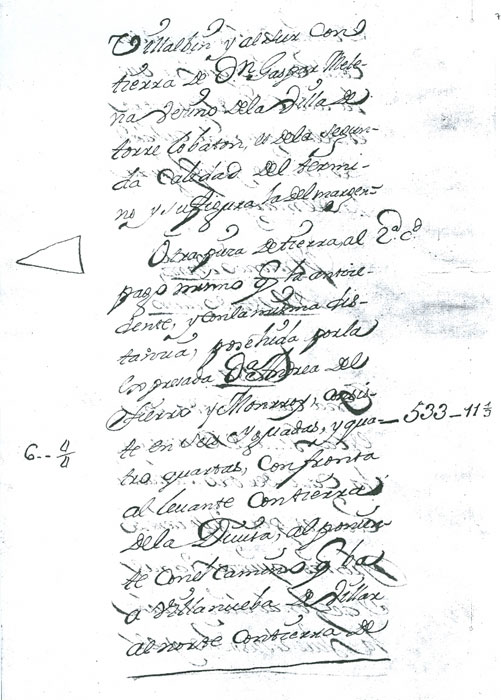 Villalbin y al sur con
tierra de Dn. Gaspar Mele-
na vezino dela Villa de
torre lobaton, es dela segun-
da Calidad del termi-
no y su figura la del margen-
Otra pieza de tierra, al 2ª c.ᵈ
pago mismo q. la antece-
dente, y con la misma dis-
tancia, posehida por la
expresada Dª Andrea del
Hierro y Monrroy, consis-
te en seis Yguadas, y qua- 533-11 4/3
6.. 4/4
tro quartas, Confronta
al levante Con tierra
dela Duena, al ponien-
te con el Camino q. ba
a Villanueba de
al norte con tierra de